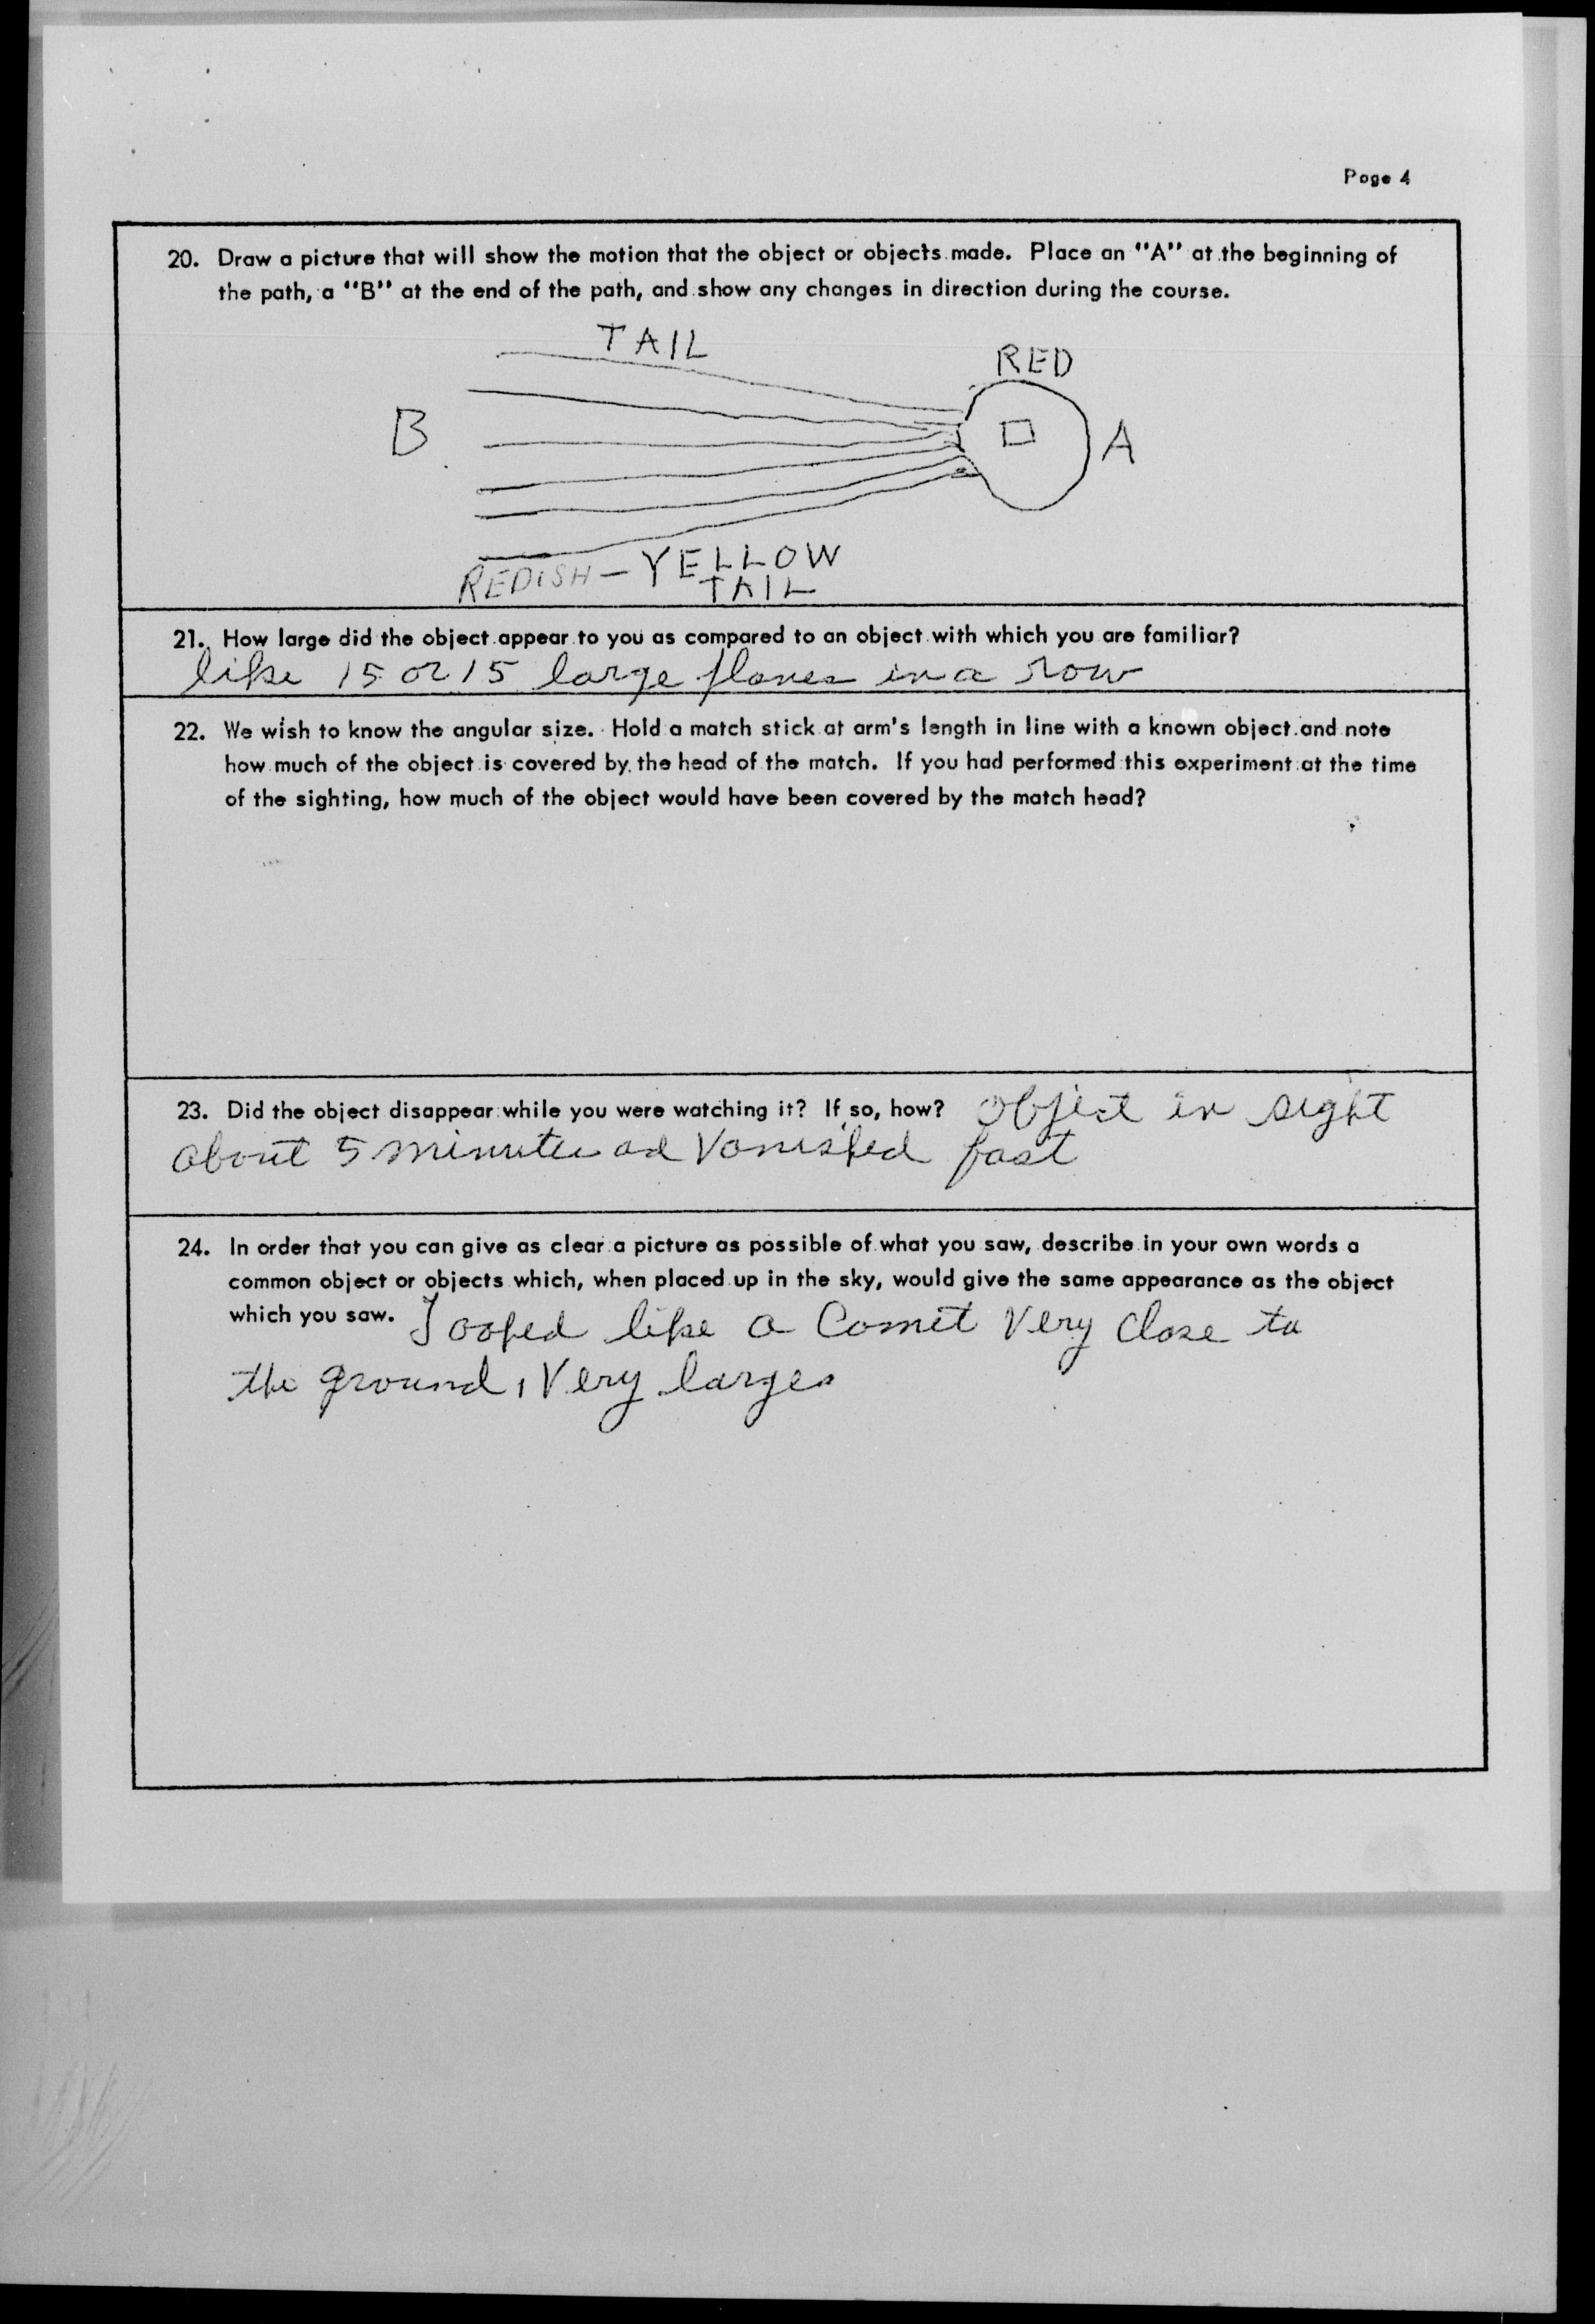 Page 4
20. Draw a picture that will show the motion that the object or objects made. Place an "A" at the beginning of
the path, a "B" at the end of the path, and show any changes in direction during the course.
TAIL
RED
B
A
REDISH - YELLOW
TAIL
21. How large did the object appear to you as compared to an object with which you are familiar?
like 15 or 15 large planes in a row
22. We wish to know the angular size. Hold a match stick at arm's length in line with a known object and note
how much of the object is covered by the head of the match. If you had performed this experiment at the time
of the sighting, how much of the object would have been covered by the match head?
23. Did the object disappear while you were watching it? If so, how? Object in sight
about 5 minutes ad Vanished fast
24. In order that you can give as clear a picture as possible of what you saw, describe in your own words a
common object or objects which, when placed up in the sky, would give the same appearance as the object
which you saw. Looked like a Comet Very Close to
the ground, Very large.